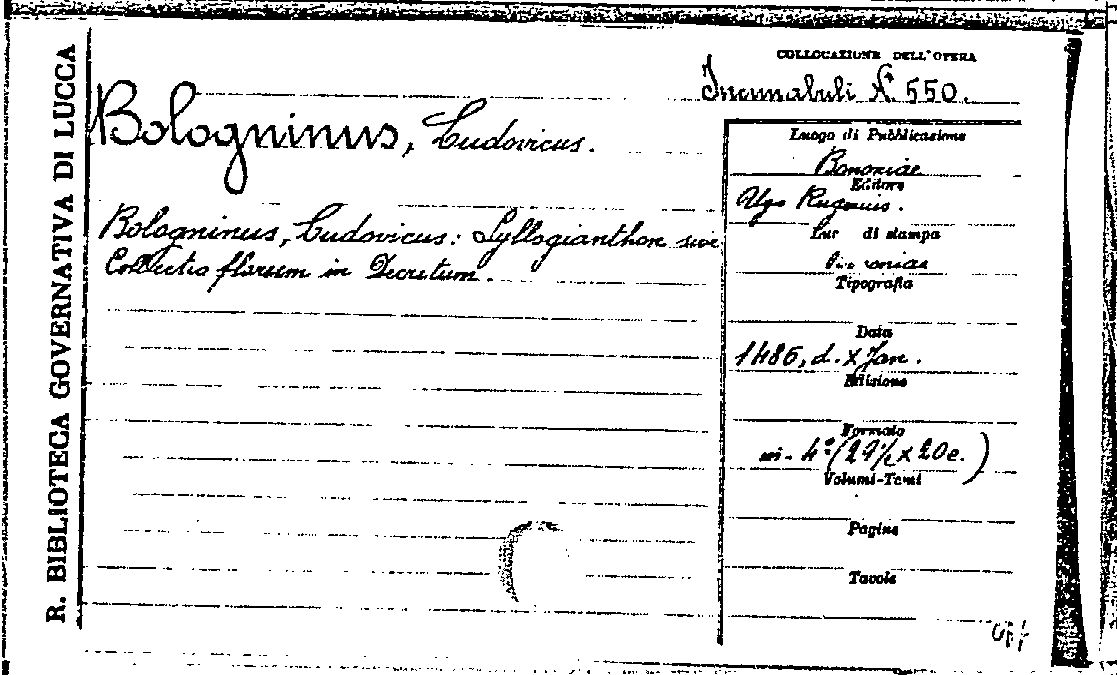 R. BIBLIOTECA GOVERNATIVA DI LUCCA
COLLOCAZIONE DELL'OPERA
Incunabuli N. 550.
Bologninus, Ludovicus.
Bologninus, Ludovicus: Syllogianthon sive
Collectio florum in Decretum.
Luogo di Pubblicazione
Bononiae
Editore
Ugo Rugerius.
Luogo di stampa
Bononiae
Tipografia
Data
1486, d. X Jan.
Edizione
Formato
in-4° (29½ x 20 c.)
Volumi-Tomi
Pagine
Tavole